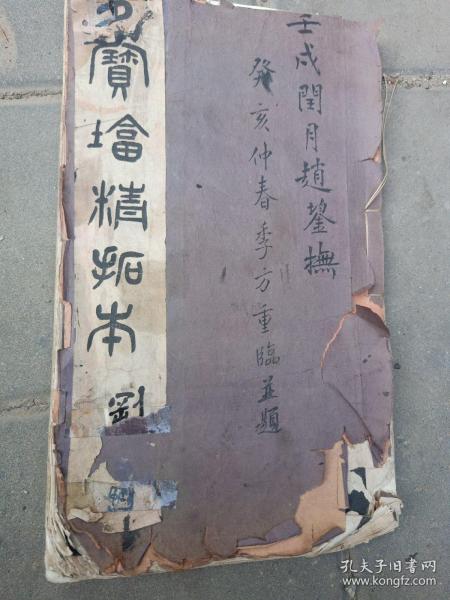 壬戌閏月趙鋆撫
癸亥仲春季方重臨並題
多寶塔精拓本
劉
孔夫子旧书网
www.kongfz.com